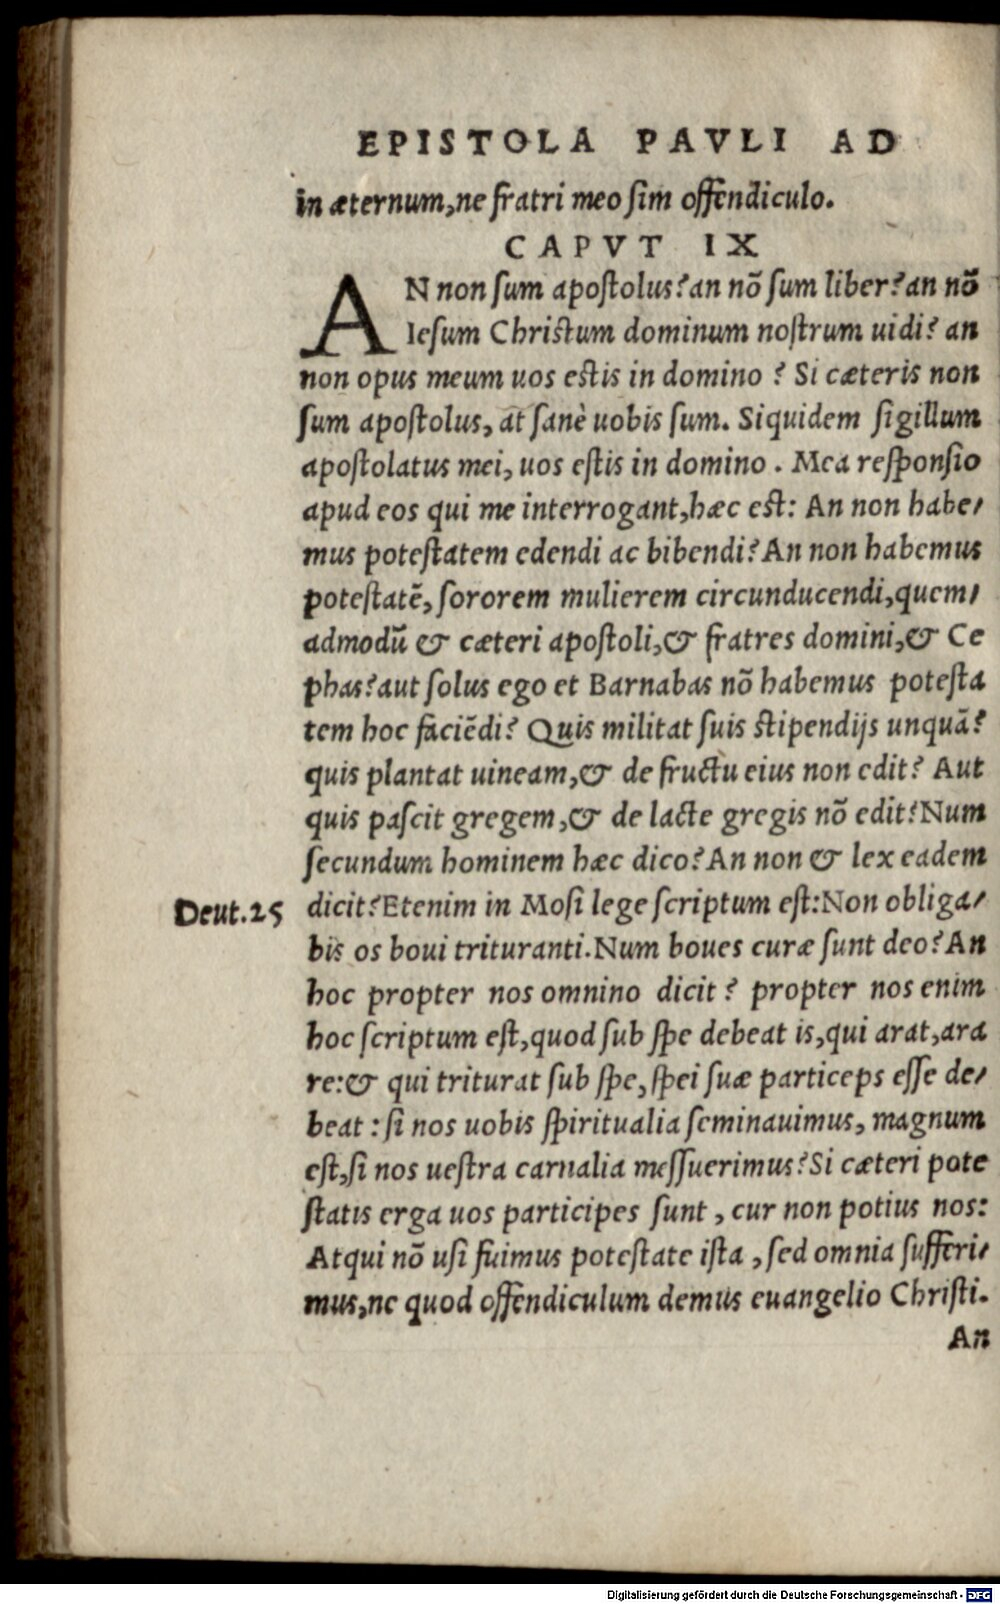 EPISTOLA PAVLI AD
in æternum, ne fratri meo ſim offendiculo.
CAPVT IX
AN non ſum apoſtolus? an nõ ſum liber? an nõ
Ieſum Chriſtum dominum noſtrum uidi? an
non opus meum uos eſtis in domino ? Si cæteris non
ſum apoſtolus, at ſanè uobis ſum. Siquidem ſigillum
apoſtolatus mei, uos eſtis in domino . Mea reſponſio
apud eos qui me interrogant, hæc eſt: An non habe⸗
mus poteſtatem edendi ac bibendi? An non habemus
poteſtatẽ, ſororem mulierem circunducendi, quem⸗
admodũ & cæteri apoſtoli, & fratres domini, & Ce
phas? aut ſolus ego et Barnabas nõ habemus poteſta
tem hoc faciẽdi? Quis militat ſuis ſtipendijs unquã?
quis plantat uineam, & de fructu eius non edit? Aut
quis paſcit gregem, & de lacte gregis nõ edit? Num
ſecundum hominem hæc dico? An non & lex eadem
Deut.25 dicit? Etenim in Moſi lege ſcriptum eſt: Non obliga⸗
bis os boui trituranti. Num boues curæ ſunt deo? An
hoc propter nos omnino dicit ? propter nos enim
hoc ſcriptum eſt, quod ſub ſpe debeat is, qui arat, ara
re: & qui triturat ſub ſpe, ſpei ſuæ particeps eſſe de⸗
beat : ſi nos uobis ſpiritualia ſeminauimus, magnum
eſt, ſi nos ueſtra carnalia meſſuerimus? Si cæteri pote
ſtatis erga uos participes ſunt , cur non potius nos:
Atqui nõ uſi fuimus poteſtate iſta , ſed omnia ſufferi⸗
mus, ne quod offendiculum demus euangelio Chriſti.
An
Digitalisierung gefördert durch die Deutsche Forschungsgemeinschaft - DFG